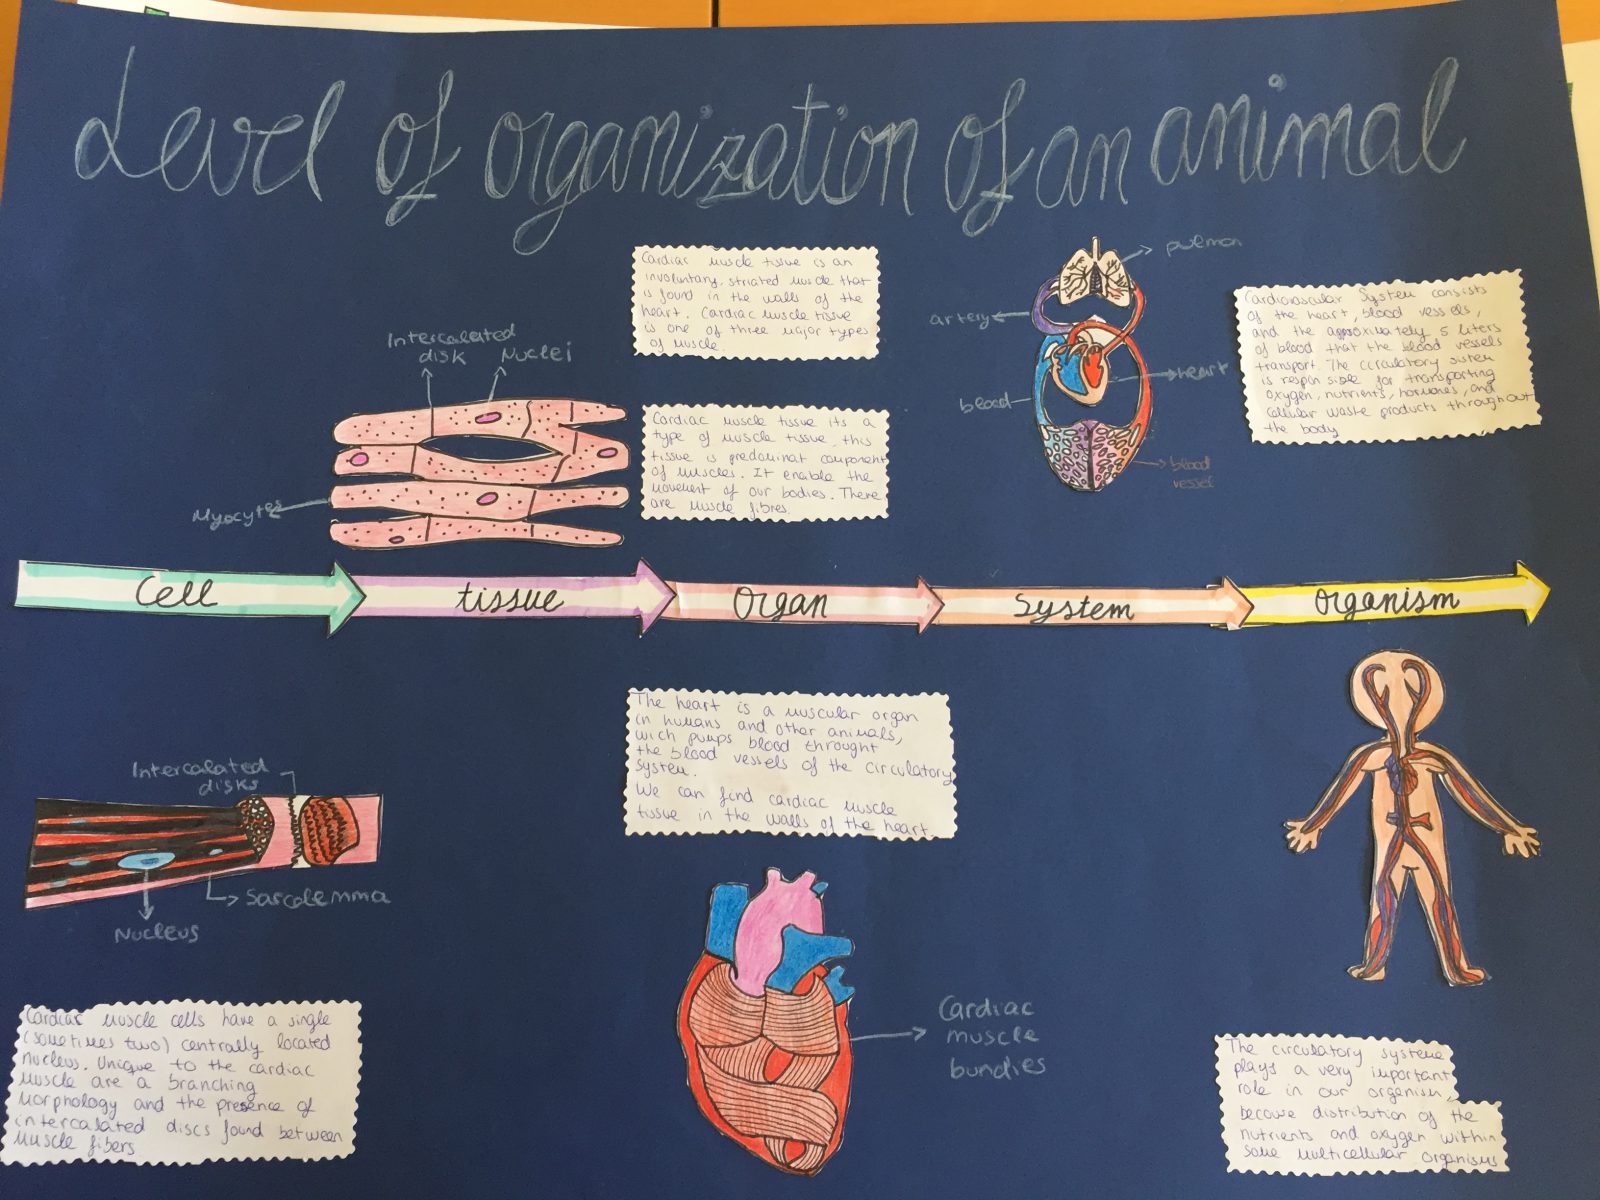 Level of organization of an animal
Cardiac muscle tissue is an
involuntary, striated muscle that
is found in the walls of the
heart. Cardiac muscle tissue
is one of three major types
of muscle.
Intercalated
disk
Nuclei
Myocytes
Cardiac muscle tissue its a
type of muscle tissue, this
tissue is predominat component
of muscles. It enable the
movement of our bodies. There
are muscle fibres.
pulmon
artery
heart
blood
blood
vessel
Cardiovascular System consists
of the heart, blood vessels,
and the approximately 5 liters
of blood that the blood vessels
transport. The circulatory sistem
is responsible for transporting
oxygen, nutrients, hormones, and
cellular waste products throughout
the body
Cell
tissue
Organ
System
organism
Intercalated
disks
Sarcolemma
Nucleus
Cardiac muscle cells have a single
(sometimes two) centrally located
nucleus. Unique to the cardiac
muscle are a branching
morphology and the presence of
intercalated discs found between
muscle fibers.
The heart is a muscular organ
in humans and other animals,
wich pumps blood throught
the blood vessels of the circulatory
system.
We can find cardiac muscle
tissue in the walls of the heart.
Cardiac
muscle
bundies
The circulatory systeme
plays a very important
role in our organism,
because distribution of the
nutrients and oxygen within
some multicellular organisms